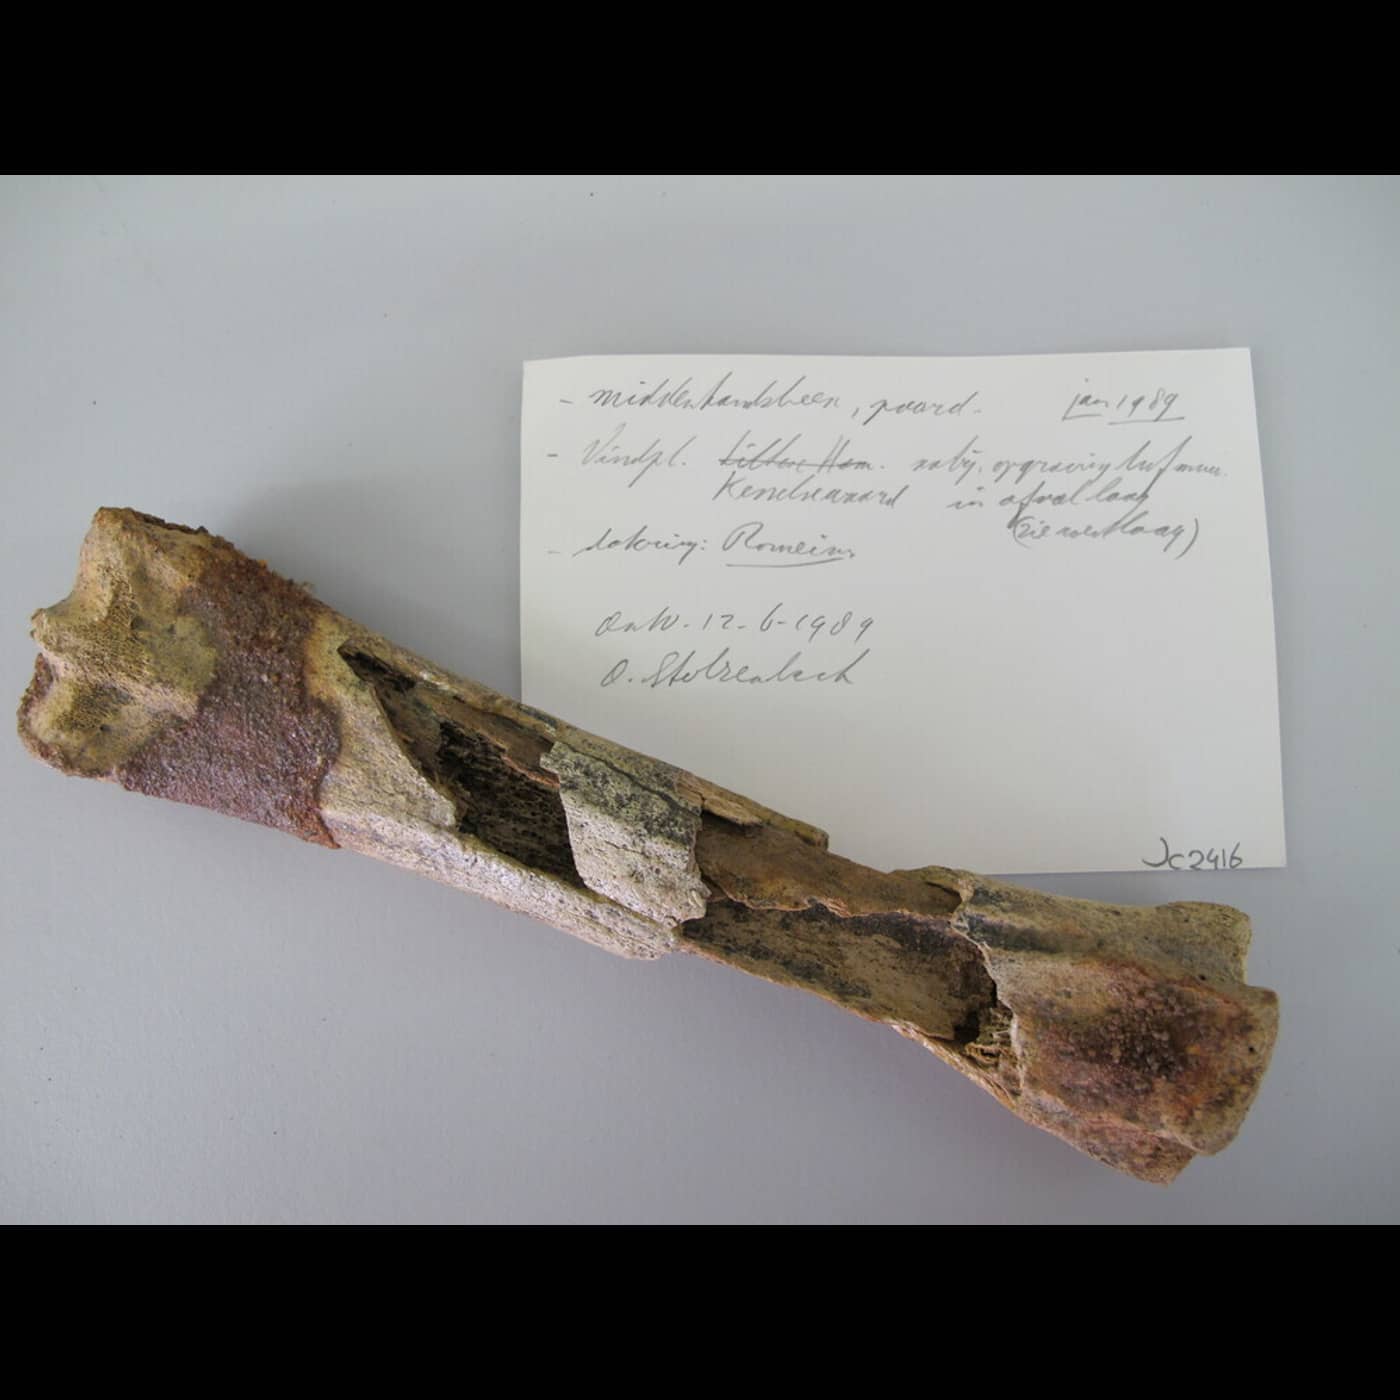 - middenhandsbeen, paard. jan 1989
- Vindpl. Littere Ham. nabij. opgraving tufmuur.
Kerkewaard in afvallaag
(zie verslag)
- datering: Romeins.
Ontv. 12-6-1989
O. Stolzenbach
Jc2416